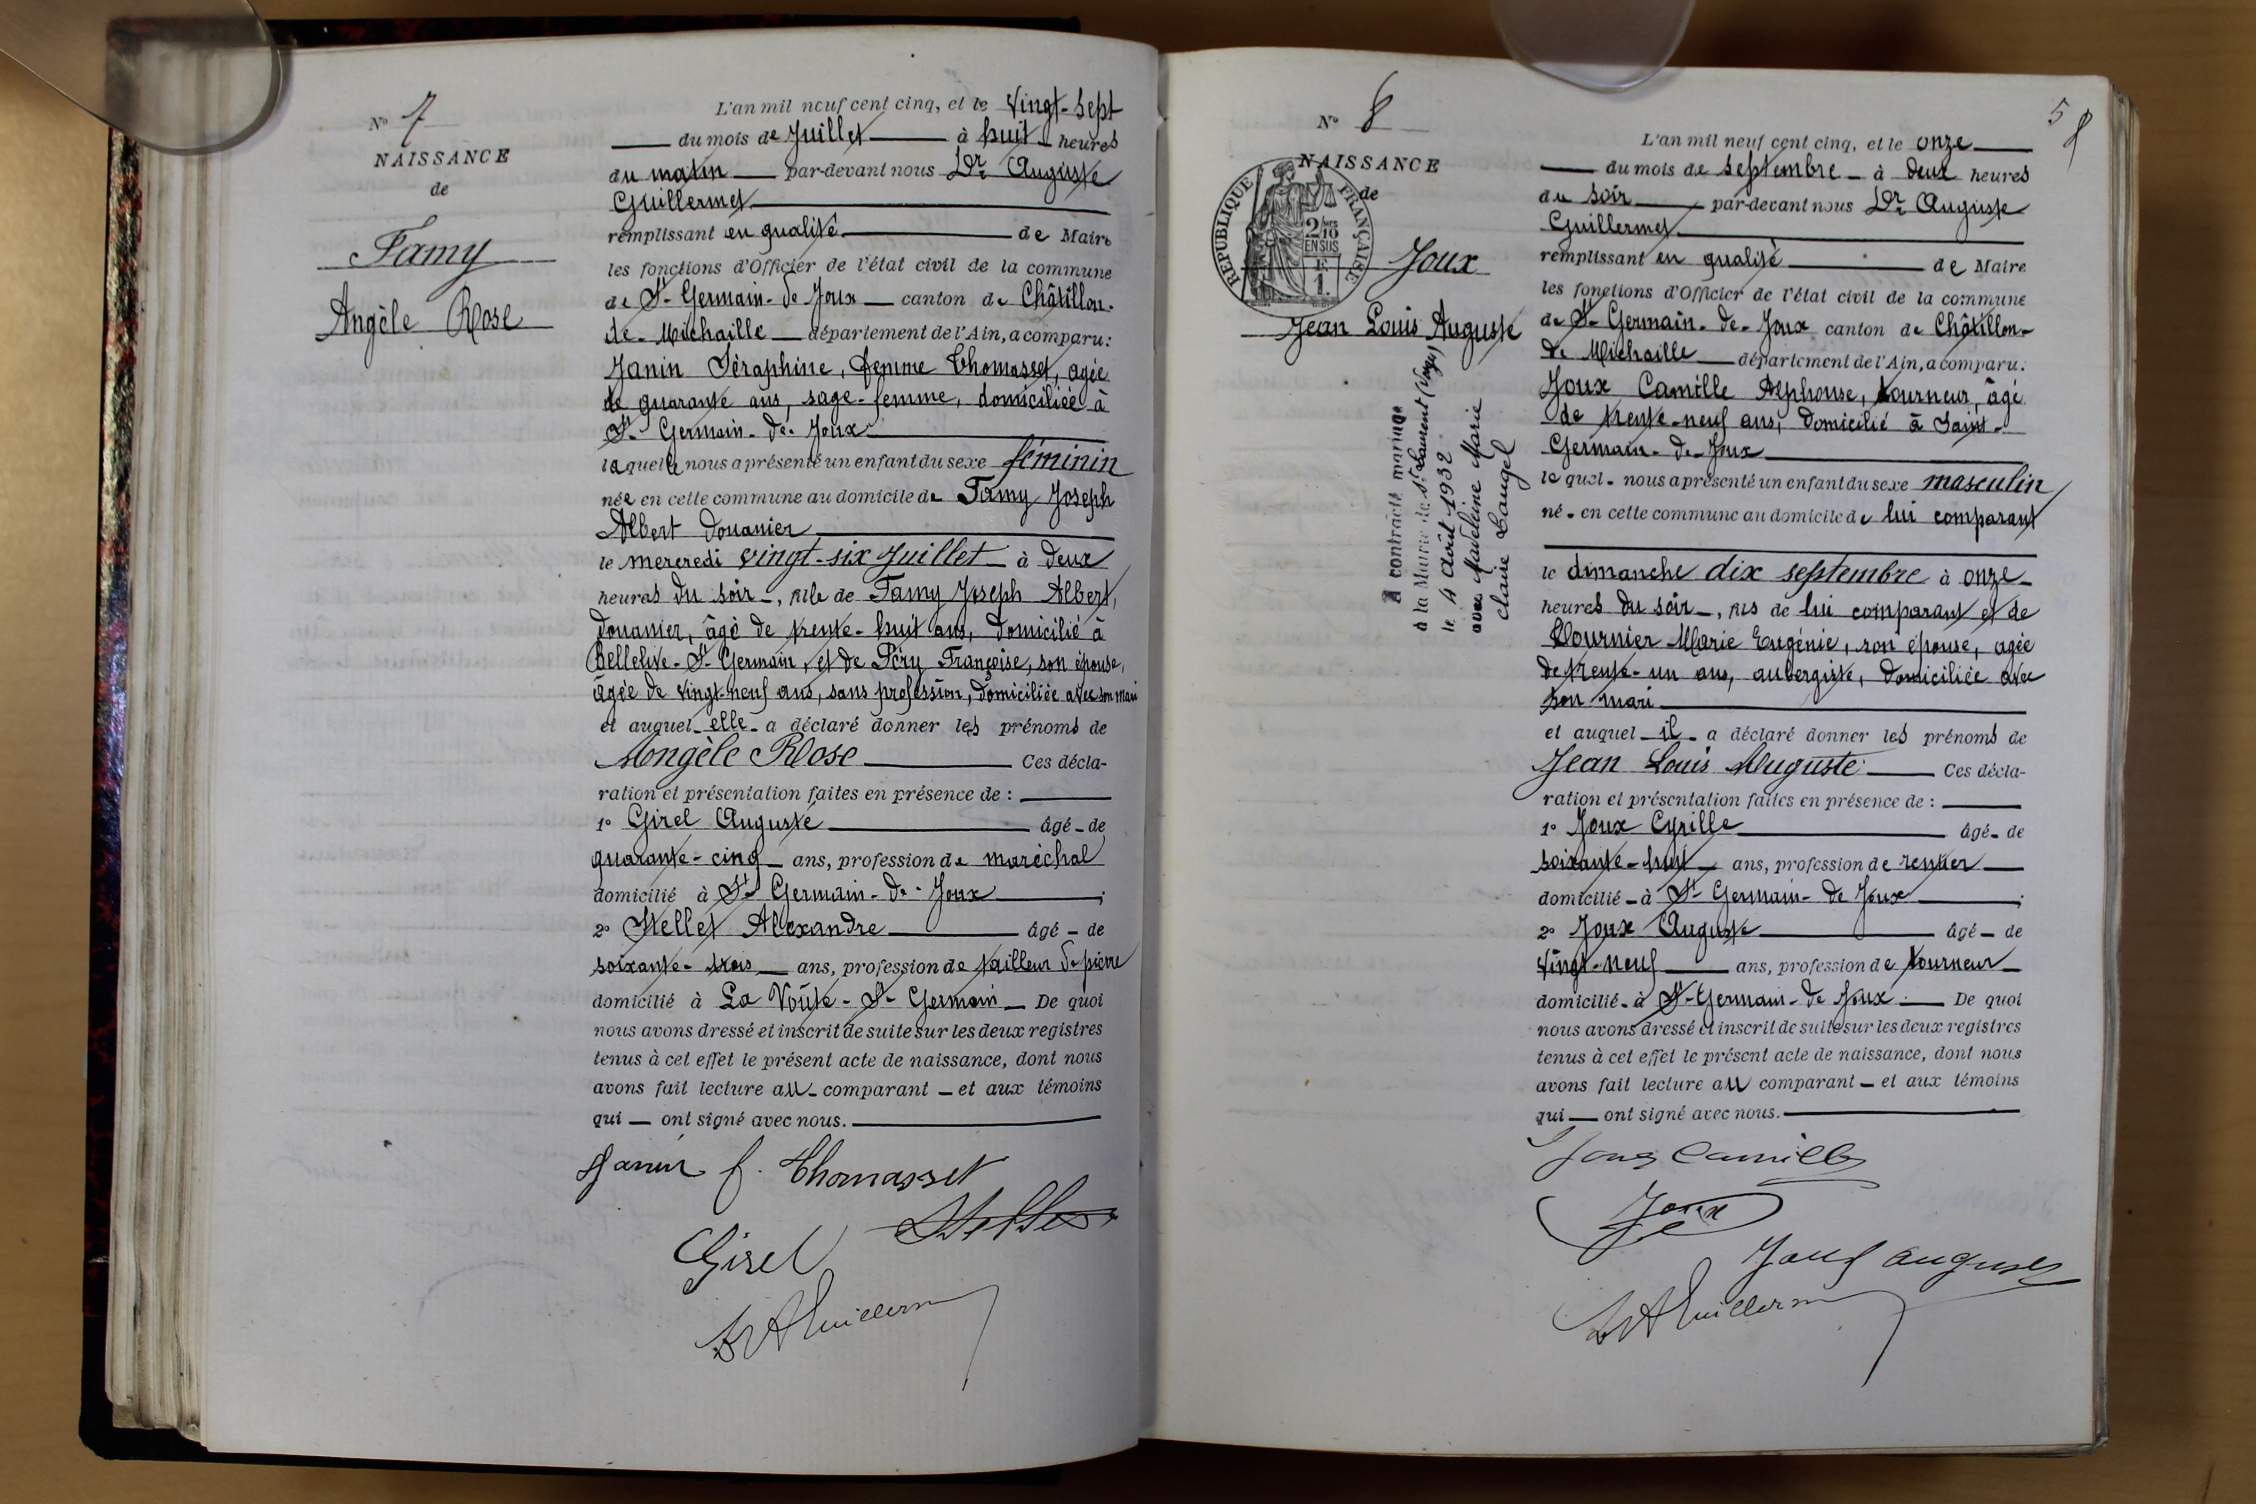 N° 7
NAISSANCE
de
Famy
Angèle Rose
L'an mil neuf cent cinq, et le vingt-sept
du mois de Juillet à huit heures
du matin par-devant nous Dr Auguste
Guillermet
remplissant en qualité de Maire
les fonctions d'Officier de l'état civil de la commune
de St Germain-de Joux canton de Châtillon-
de-Michaille département de l'Ain, a comparu:
Janin Séraphine, femme Thomasset, agée
de quarante ans, sage-femme, domiciliée à
St Germain-de-Joux
laquelle nous a présenté un enfant du sexe féminin
née en cette commune au domicile de Famy Joseph
Albert douanier
le mercredi vingt-six Juillet à deux
heures du soir, fille de Famy Joseph Albert,
douanier, âgé de trente-huit ans, domicilié à
Bellelive-St Germain, et de Péry Françoise, son épouse,
âgée de vingt-neuf ans, sans profession, domiciliée avec son mari
et auquel elle a déclaré donner les prénoms de
Angèle Rose Ces décla-
ration et présentation faites en présence de :
1° Girel Auguste âgé de
quarante-cinq ans, profession de maréchal
domicilié à St Germain-de-Joux ;
2° Mellet Alexandre âgé de
soixante-trois ans, profession de tailleur de pierre
domicilié à La Voûte-St Germain De quoi
nous avons dressé et inscrit de suite sur les deux registres
tenus à cet effet le présent acte de naissance, dont nous
avons fait lecture au comparant et aux témoins
qui ont signé avec nous.
Janin f. Thomasset
Girel
Dr A Guillermet
58
N° 8
NAISSANCE
de
RÉPUBLIQUE FRANÇAISE
2/10
EN SUS
F
1.
Joux
Jean Louis Auguste
A contracté mariage
à la Mairie de St Laurent (Vosges)
le 4 août 1932
avec Madeleine Marie
Claire Laugel
L'an mil neuf cent cinq, et le onze
du mois de septembre à deux heures
du soir par-devant nous Dr Auguste
Guillermet
remplissant en qualité de Maire
les fonctions d'Officier de l'état civil de la commune
de St Germain-de-Joux canton de Châtillon-
de Michaille département de l'Ain, a comparu:
Joux Camille Alphonse, tourneur, âgé
de trente-neuf ans, domicilié à Saint-
Germain-de-Joux
lequel nous a présenté un enfant du sexe masculin
né en cette commune au domicile de lui comparant
le dimanche dix septembre à onze
heures du soir, fils de lui comparant et de
Tournier Marie Eugénie, son épouse, agée
de trente-un ans, aubergiste, domiciliée avec
son mari
et auquel il a déclaré donner les prénoms de
Jean Louis Auguste Ces décla-
ration et présentation faites en présence de :
1° Joux Cyrille âgé de
soixante-huit ans, profession de rentier
domicilié à St Germain-de Joux ;
2° Joux Auguste âgé de
vingt-neuf ans, profession de tourneur
domicilié à St-Germain-de Joux. De quoi
nous avons dressé et inscrit de suite sur les deux registres
tenus à cet effet le présent acte de naissance, dont nous
avons fait lecture au comparant et aux témoins
qui ont signé avec nous.
Joux Camille
Joux
Joux Auguste
Dr A Guillermet